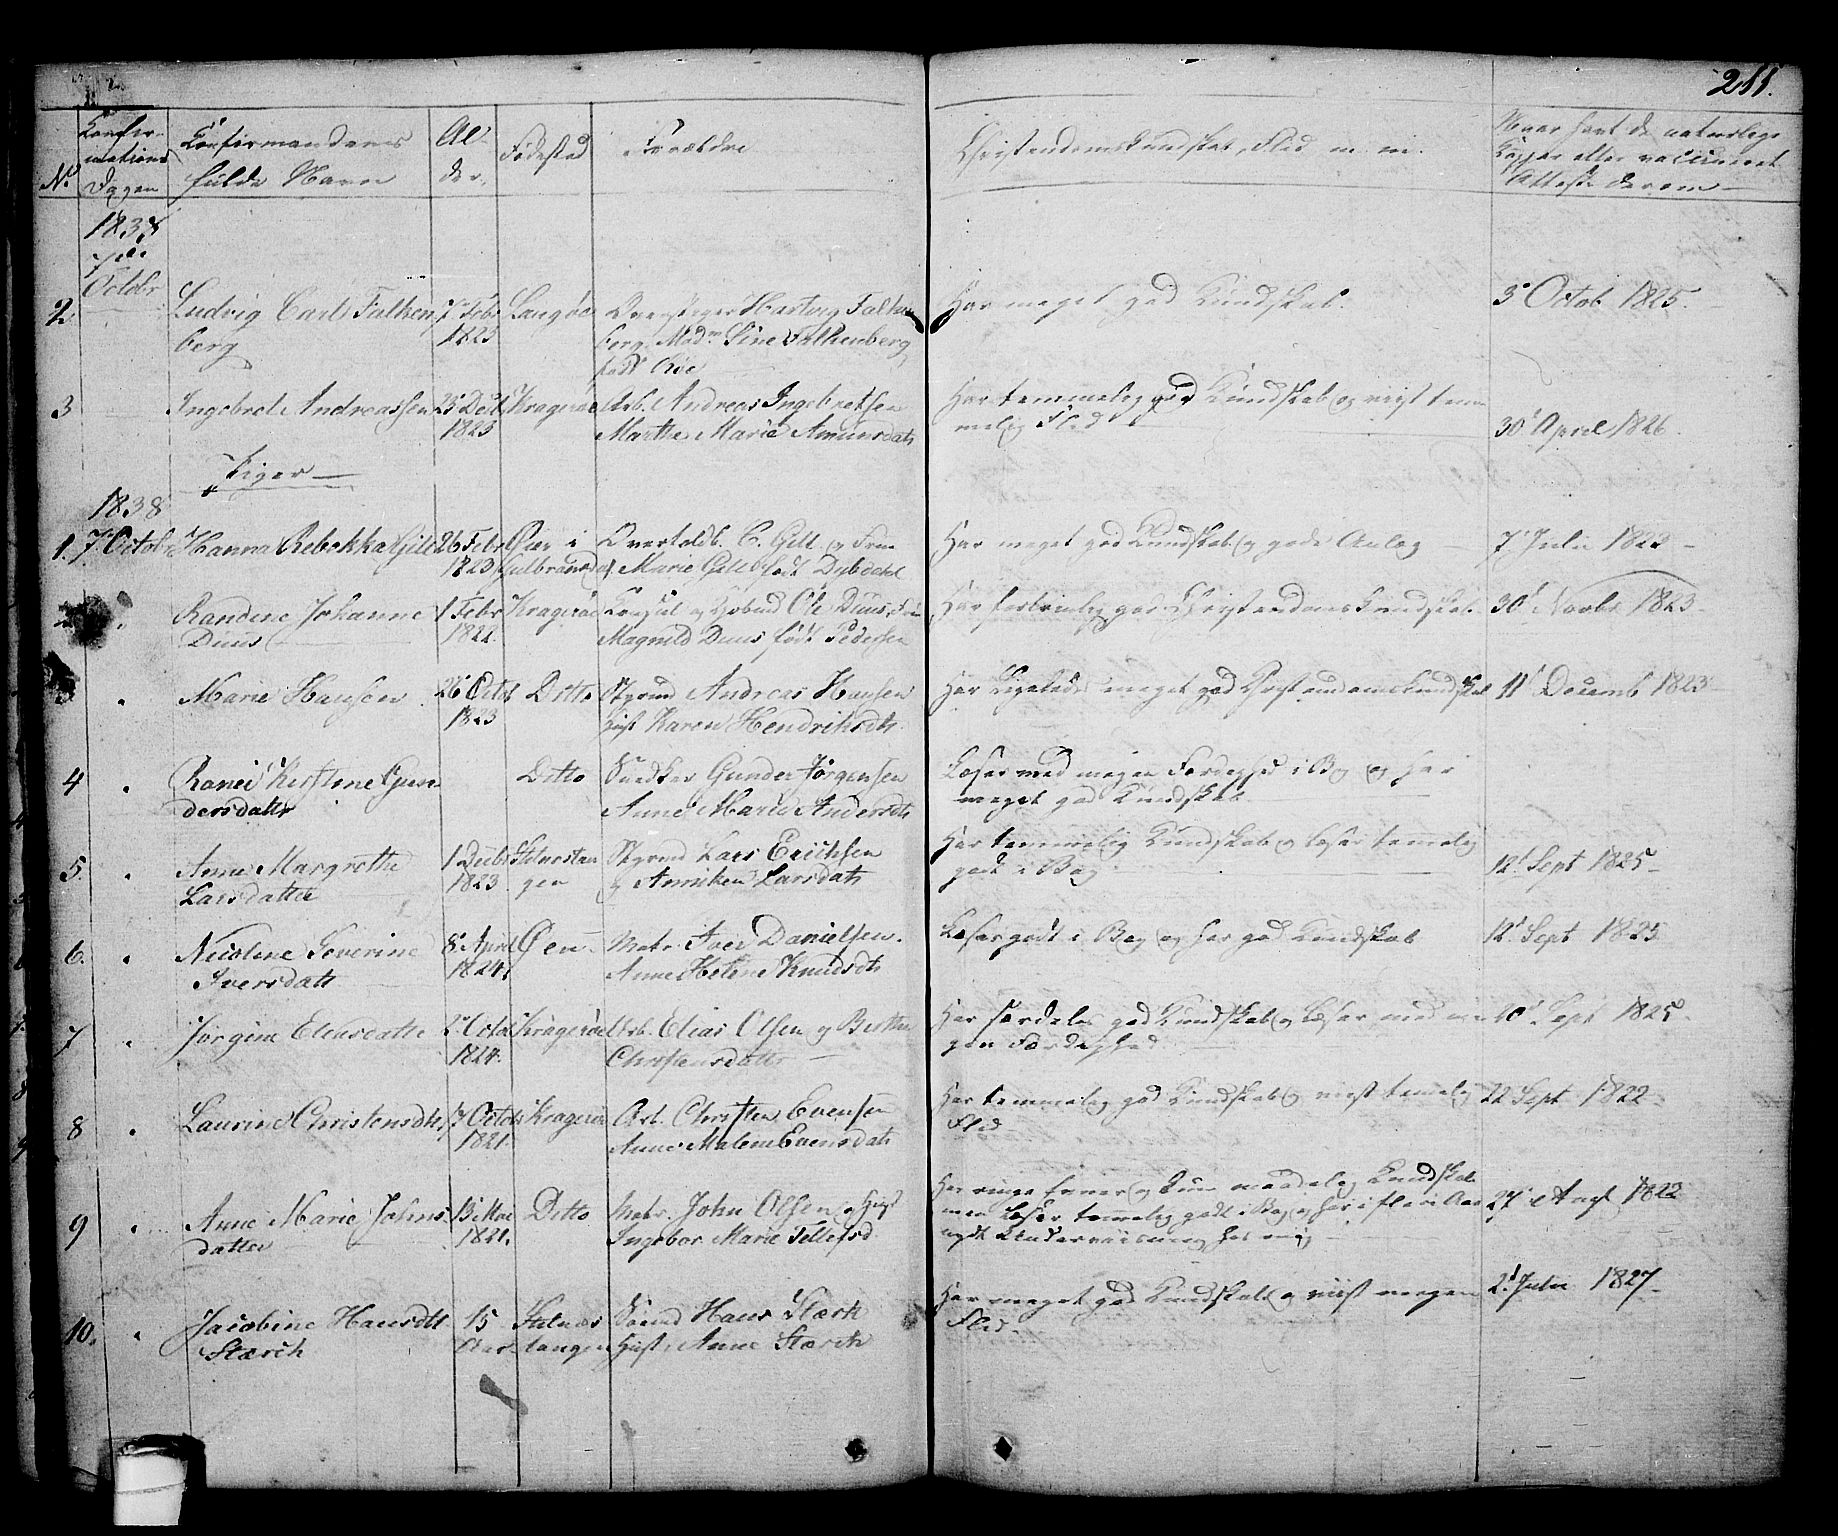 211.
No.
Confir-
mations
Dagen
Confirmandernes
fulde Navn
Al-
der.
Fødested
Forældre
Christendomskundskab, Flid m. m.
Naar havt de naturlige
Kopper eller vaccineret
Attest derom
1838
7de
Octobr
2
Ludvig Carl Falken
berg
7 Febr
1823
Langøe
Hartvig Falken
berg, Madm Sine Falkenberg
født Bøe
Har meget god Kundskab.
3 Octob 1825.
3
Ingebret Andreassen
23 Decbr
1823
Kragerøe
Arb. Andreas Ingebretsen
Marthe Marie Amunsdatr
Har temmelig god Kundskab og viist tem
melig Flid
30 April 1826.
Piger
1838
1.
7 Octobr
Hanna Rebekka Gill
26 Febr
1823
Øier i
Gulbransdal
Overtoldb. C. Gill og Frue
Marie Gill født Dybdahl
Har meget god Kundskab og gode Anlæg
7 Julii 1823
Randine Johanne
Duus
1 Febr
1822.
Kragerøe
Consul og Kjøbmd Ole Duus, Frue
Magnild Duus født Pedersen
Har fortrinlig god Christendoms Kundskab.
30 Novbr 1823
Marie Hansen
26 Octb
1823
Ditto
Skprmd Andreas Hansen
Hust Karen Hendriksdtr.
Har Ligeledes meget god Christendomskundskab
11 Decemb 1823
4
Kirstine Gun
dersdattr
Ditto
Snedker Gunder Jørgensen
Anne Maria Andersdtr
Læser med megen Færdighed i Bog og har
meget god Kundskab
5.
Anne Margrethe
Larsdatter
1 Decbr
1823
Stilnestan
gen
Skprmd Lars Erichsen
og Anniken Larsdatr
Har temmelig Kundskab og læser temmelig
godt i Bog
12 Sept 1825
6.
Nicoline Severine
Iversdatr
8 April
1824
Øen
Matr. Iver Danielsen.
Anne Helene Knudsdtr
Læser godt i Bog og har god Kundskab
12 Sept 1825
7
Jørgine Eliasdattr
2 Octob
1824.
Kragerøe
Arb. Elias Olsen og Berthe
Christensdatter
Har særdeles god Kundskab og læser med me
gen Færdighed
20 Sept 1825
8
Laurine Christensdtr
7 Octob
1821.
Kragerøe
Arb. Christen Evensen
Anne Malene Evensdatr
Har temmelig god Kundskab og viist temmelig
Flid
22 Sept 1822
9
Anne Marie Johns
datter
13 Mai
1821.
Ditto
Matr. John Olsen og Hust
Ingebor Marie Tellefsd
Har ringe Evner og kun maadelig Kundskab
men læser temmelig godt i Bog og har i flere Aar
nydt Underviisning hos mig
27 Augt 1822
10.
Jacobine Hansdtr
Stærk
15
Aar
Stilnes
tangen
Sømd Hans Stærk
Hust, Anne Stærch
Har meget god Kundskab og viist megen
Flid.
2 Julii 1827